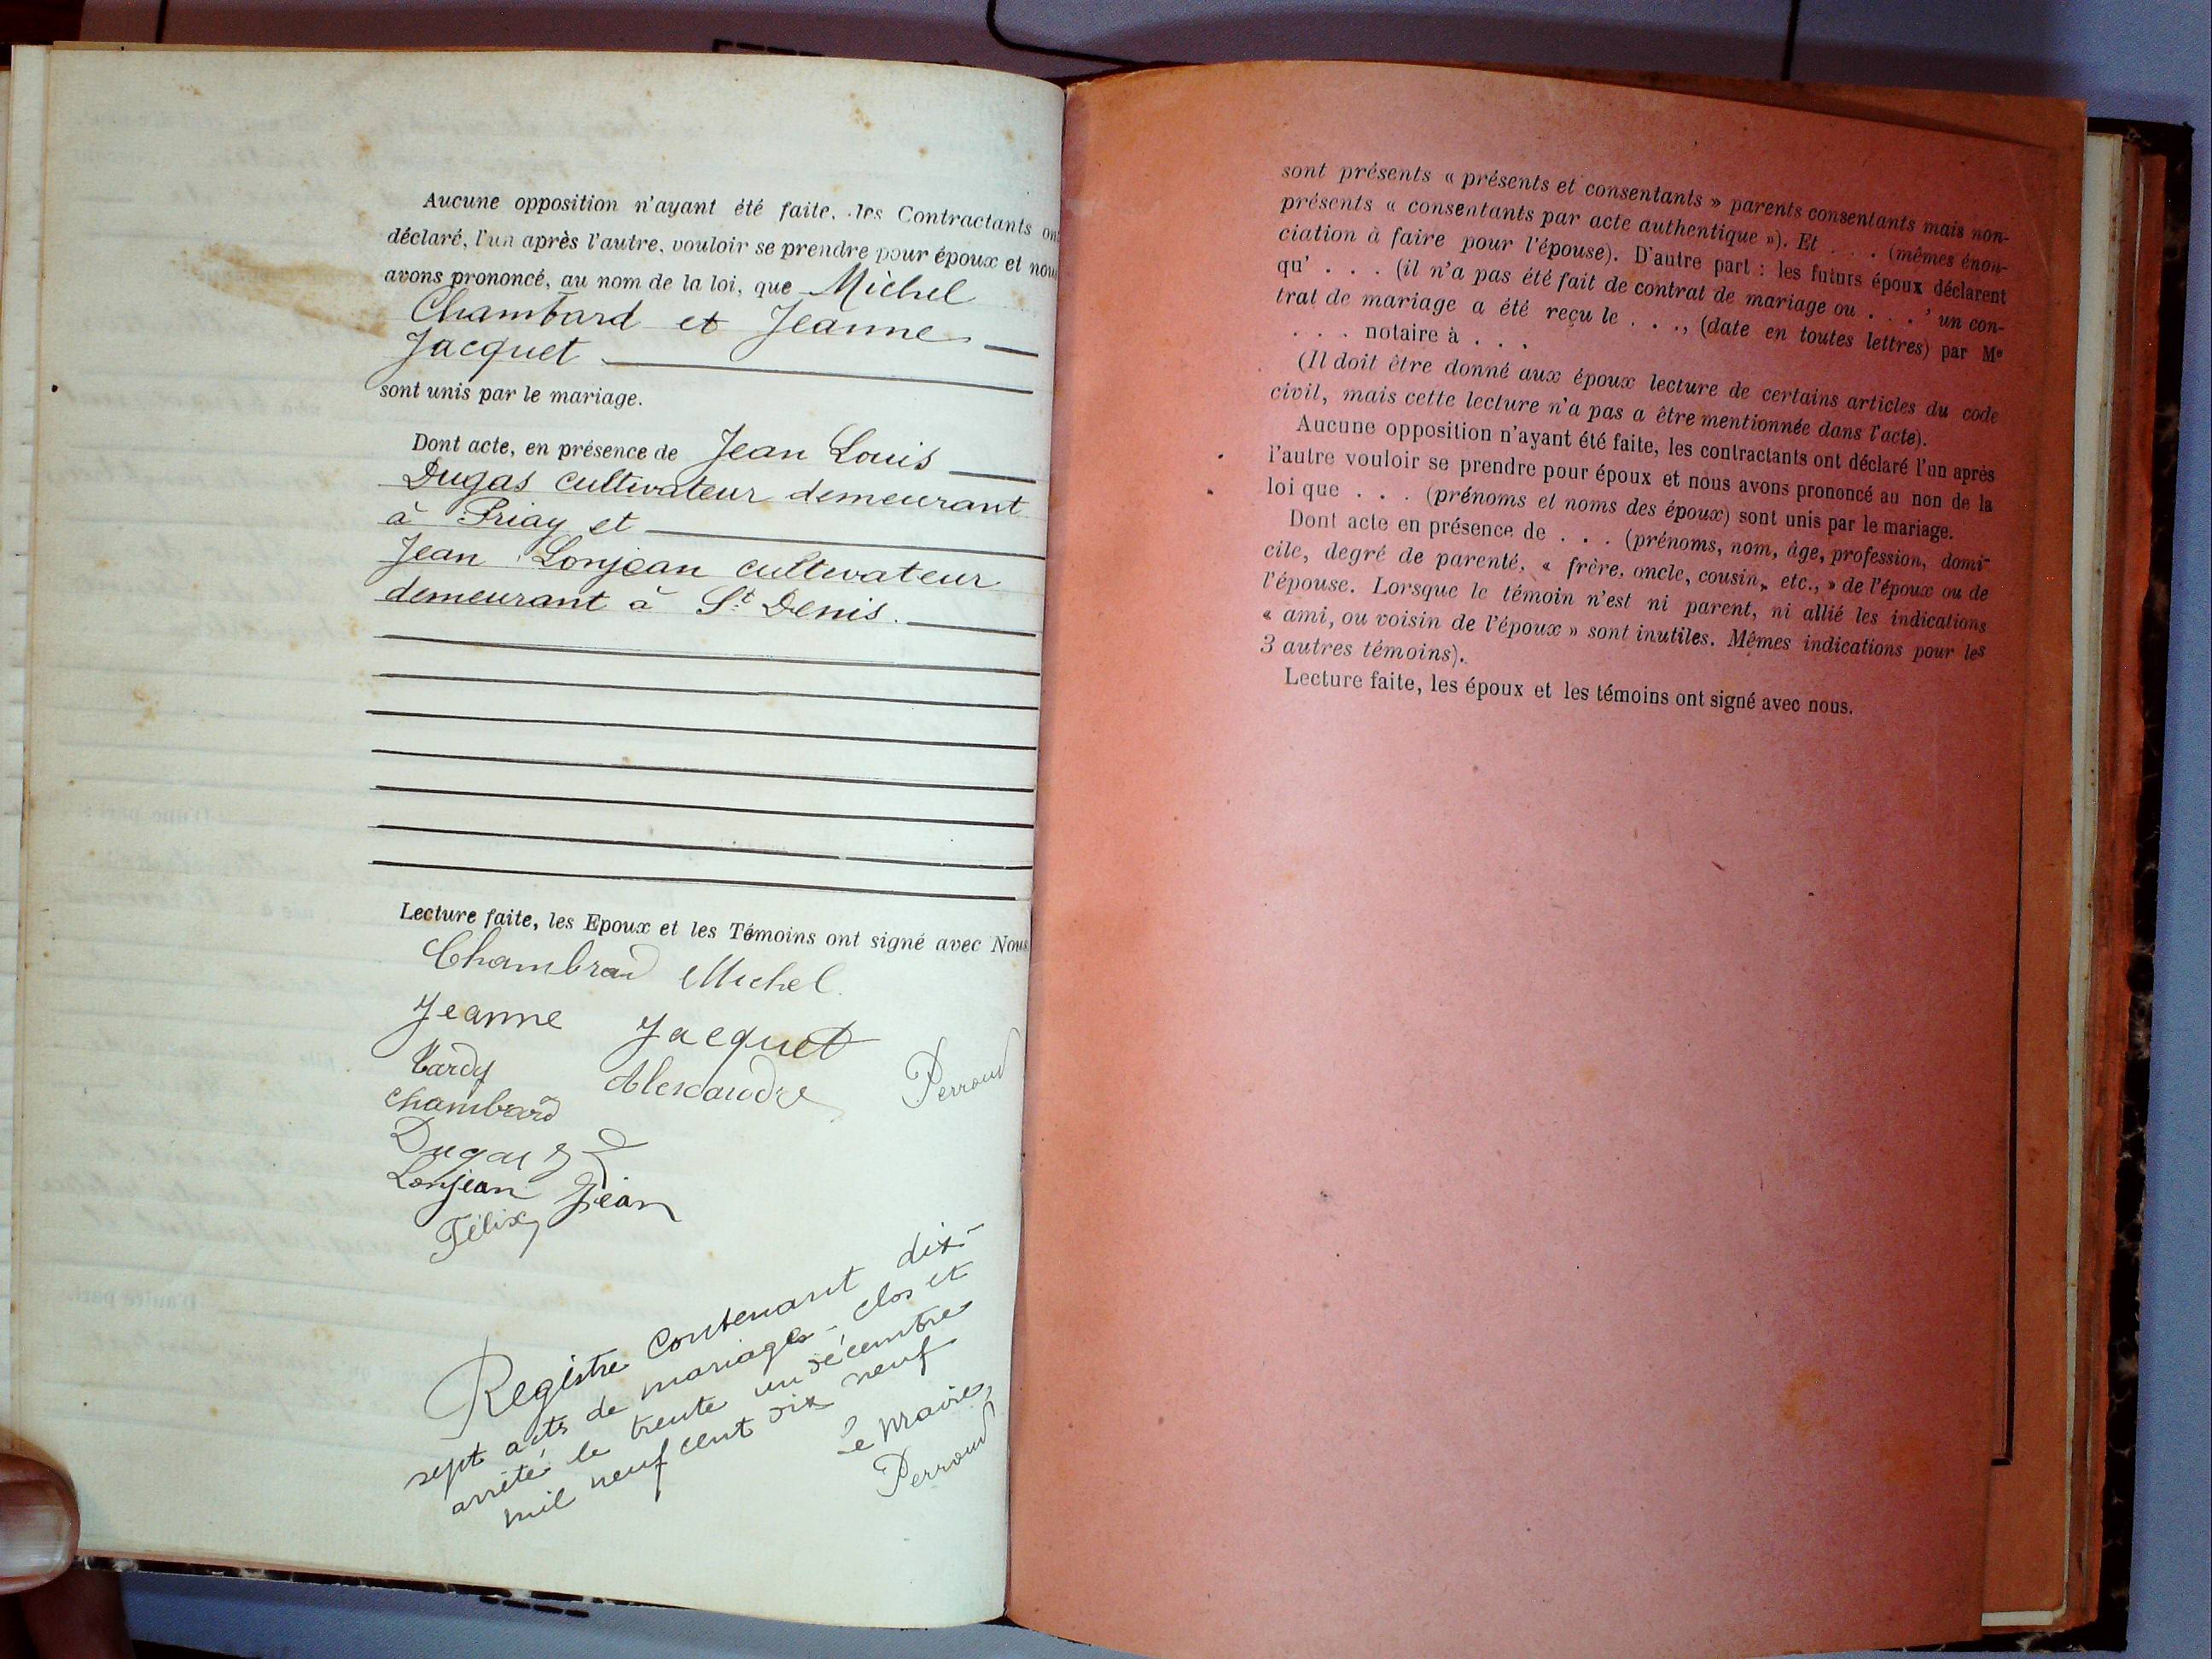 Aucune opposition n'ayant été faite, les Contractants ont
déclaré, l'un après l'autre, vouloir se prendre pour époux et nous
avons prononcé, au nom de la loi, que Michel
Chambard et Jeanne
Jacquet
sont unis par le mariage.
Dont acte, en présence de Jean Louis
Dugas cultivateur demeurant
à Priay et
Jean Lonjean cultivateur
demeurant à St Denis.
Lecture faite, les Epoux et les Témoins ont signé avec Nous
Chambrad Michel.
Jeanne Jacquet
Tardy Alexandre Perroud
Chambard
Dugas
Lonjean Jean
Félix
Registre Contenant dix-
sept actes de mariages - clos et
arrêté le trente un décembre
mil neuf cent dix neuf
Le Maire,
Perroud
sont présents « présents et consentants » parents consentants mais non-
présents « consentants par acte authentique »). Et . . . (mêmes énon-
ciation à faire pour l'épouse). D'autre part : les futurs époux déclarent
qu' . . . (il n'a pas été fait de contrat de mariage ou . . . ' un con-
trat de mariage a été reçu le . . ., (date en toutes lettres) par Me
. . . notaire à . . .
(Il doit être donné aux époux lecture de certains articles du code
civil, mais cette lecture n'a pas a être mentionnée dans l'acte).
Aucune opposition n'ayant été faite, les contractants ont déclaré l'un après
l'autre vouloir se prendre pour époux et nous avons prononcé au non de la
loi que . . . (prénoms et noms des époux) sont unis par le mariage.
Dont acte en présence de . . . (prénoms, nom, âge, profession, domi-
cile, degré de parenté, « frère, oncle, cousin, etc., » de l'époux ou de
l'épouse. Lorsque le témoin n'est ni parent, ni allié les indications
« ami, ou voisin de l'époux » sont inutiles. Mêmes indications pour les
3 autres témoins).
Lecture faite, les époux et les témoins ont signé avec nous.